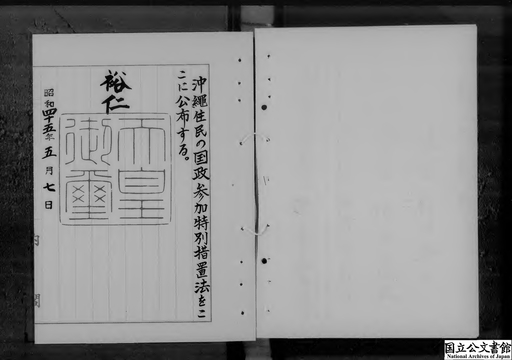 沖縄住民の国政参加特別措置法をこ
こに公布する。
裕仁
天皇
御璽
昭和四十五年五月七日
内閣
国立公文書館
National Archives of Japan